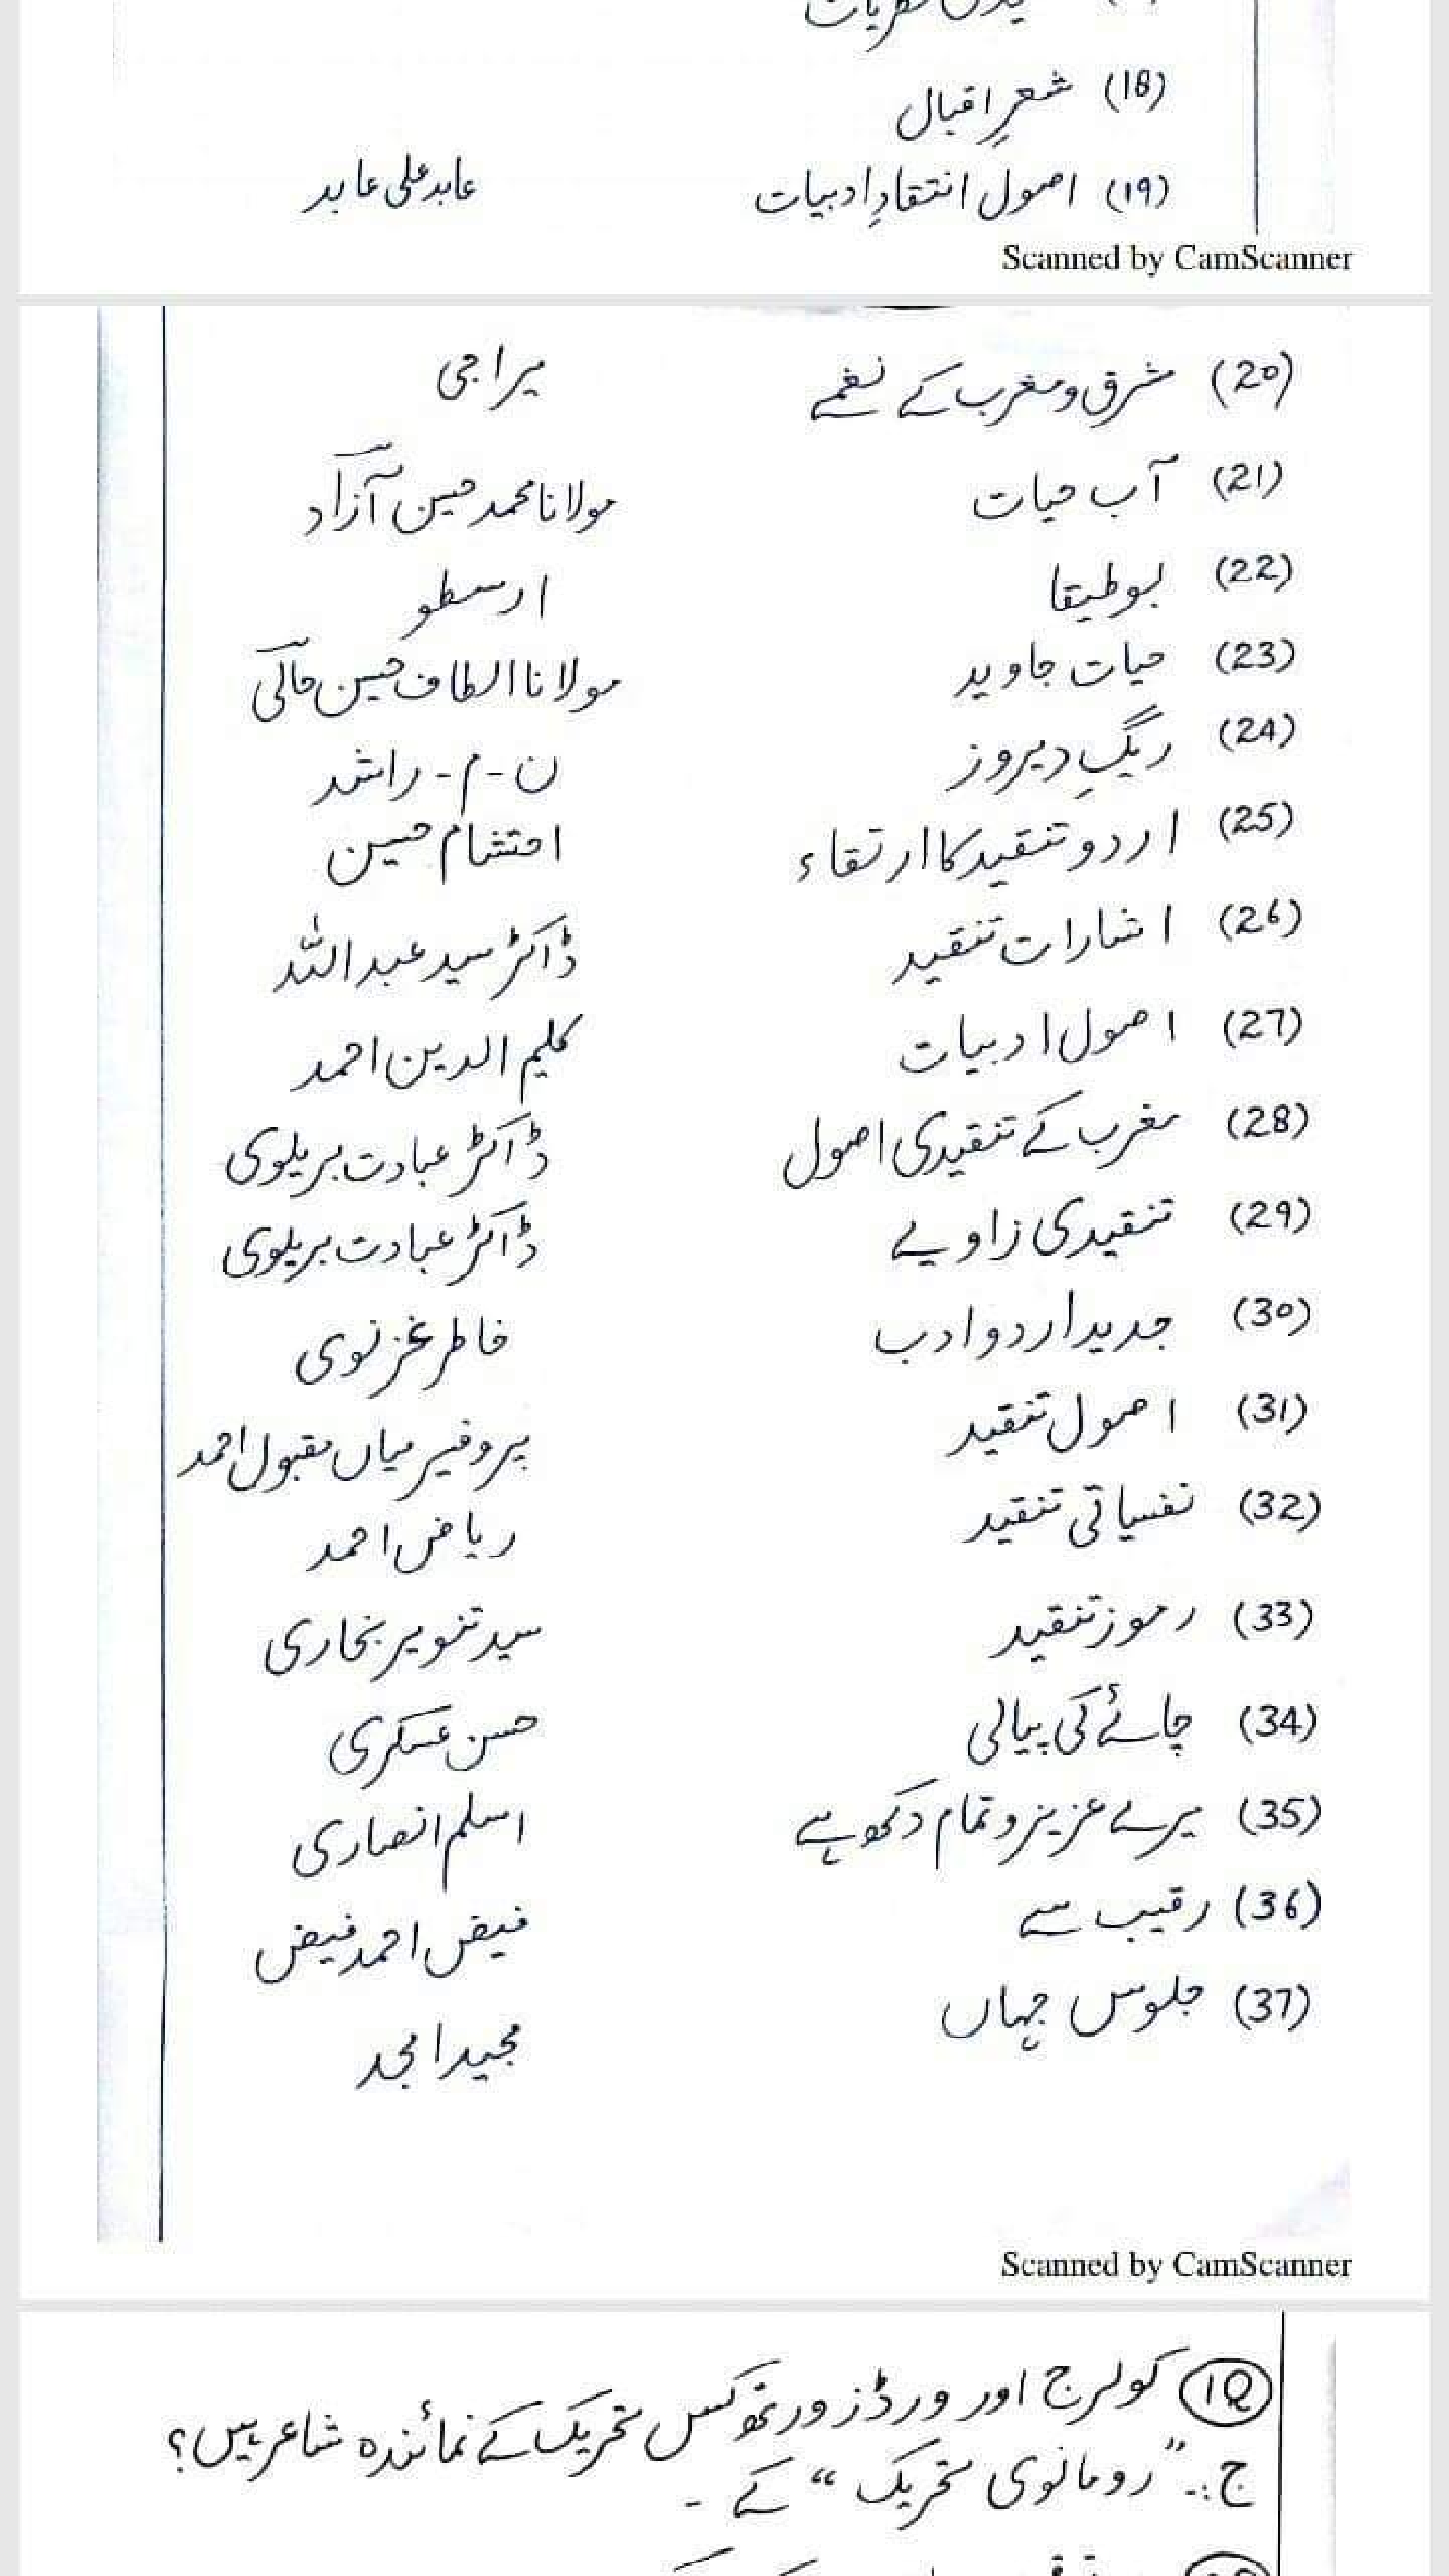 (18) شعرِ اقبال
(19) اصول انتقادِ ادبیات عابد علی عابد
Scanned by CamScanner
(20) مشرق و مغرب کے نغمے میرا جی
(21) آب حیات مولانا محمد حسین آزاد
(22) بوطیقا ارسطو
(23) حیات جاوید مولانا الطاف حسین حالی
(24) ریگِ دیروز ن-م-راشد
(25) اردو تنقید کا ارتقاء احتشام حسین
(26) اشارات تنقید ڈاکٹر سید عبد اللہ
(27) اصول ادبیات کلیم الدین احمد
(28) مغرب کے تنقیدی اصول ڈاکٹر عبادت بریلوی
(29) تنقیدی زاویے ڈاکٹر عبادت بریلوی
(30) جدید اردو ادب خاطر غزنوی
(31) اصول تنقید پروفیسر میاں مقبول احمد
(32) نفسیاتی تنقید ریاض احمد
(33) رموز تنقید سید تنویر بخاری
(34) چائے کی پیالی حسن عسکری
(35) میرے عزیزو تمام دکھ ہے اسلم انصاری
(36) رقیب سے فیض احمد فیض
(37) جلوس جہاں مجید امجد
Scanned by CamScanner
1Q کولرج اور ورڈزورتھ کس تحریک کے نمائندہ شاعر ہیں؟
ج:۔ "رومانوی تحریک" کے -